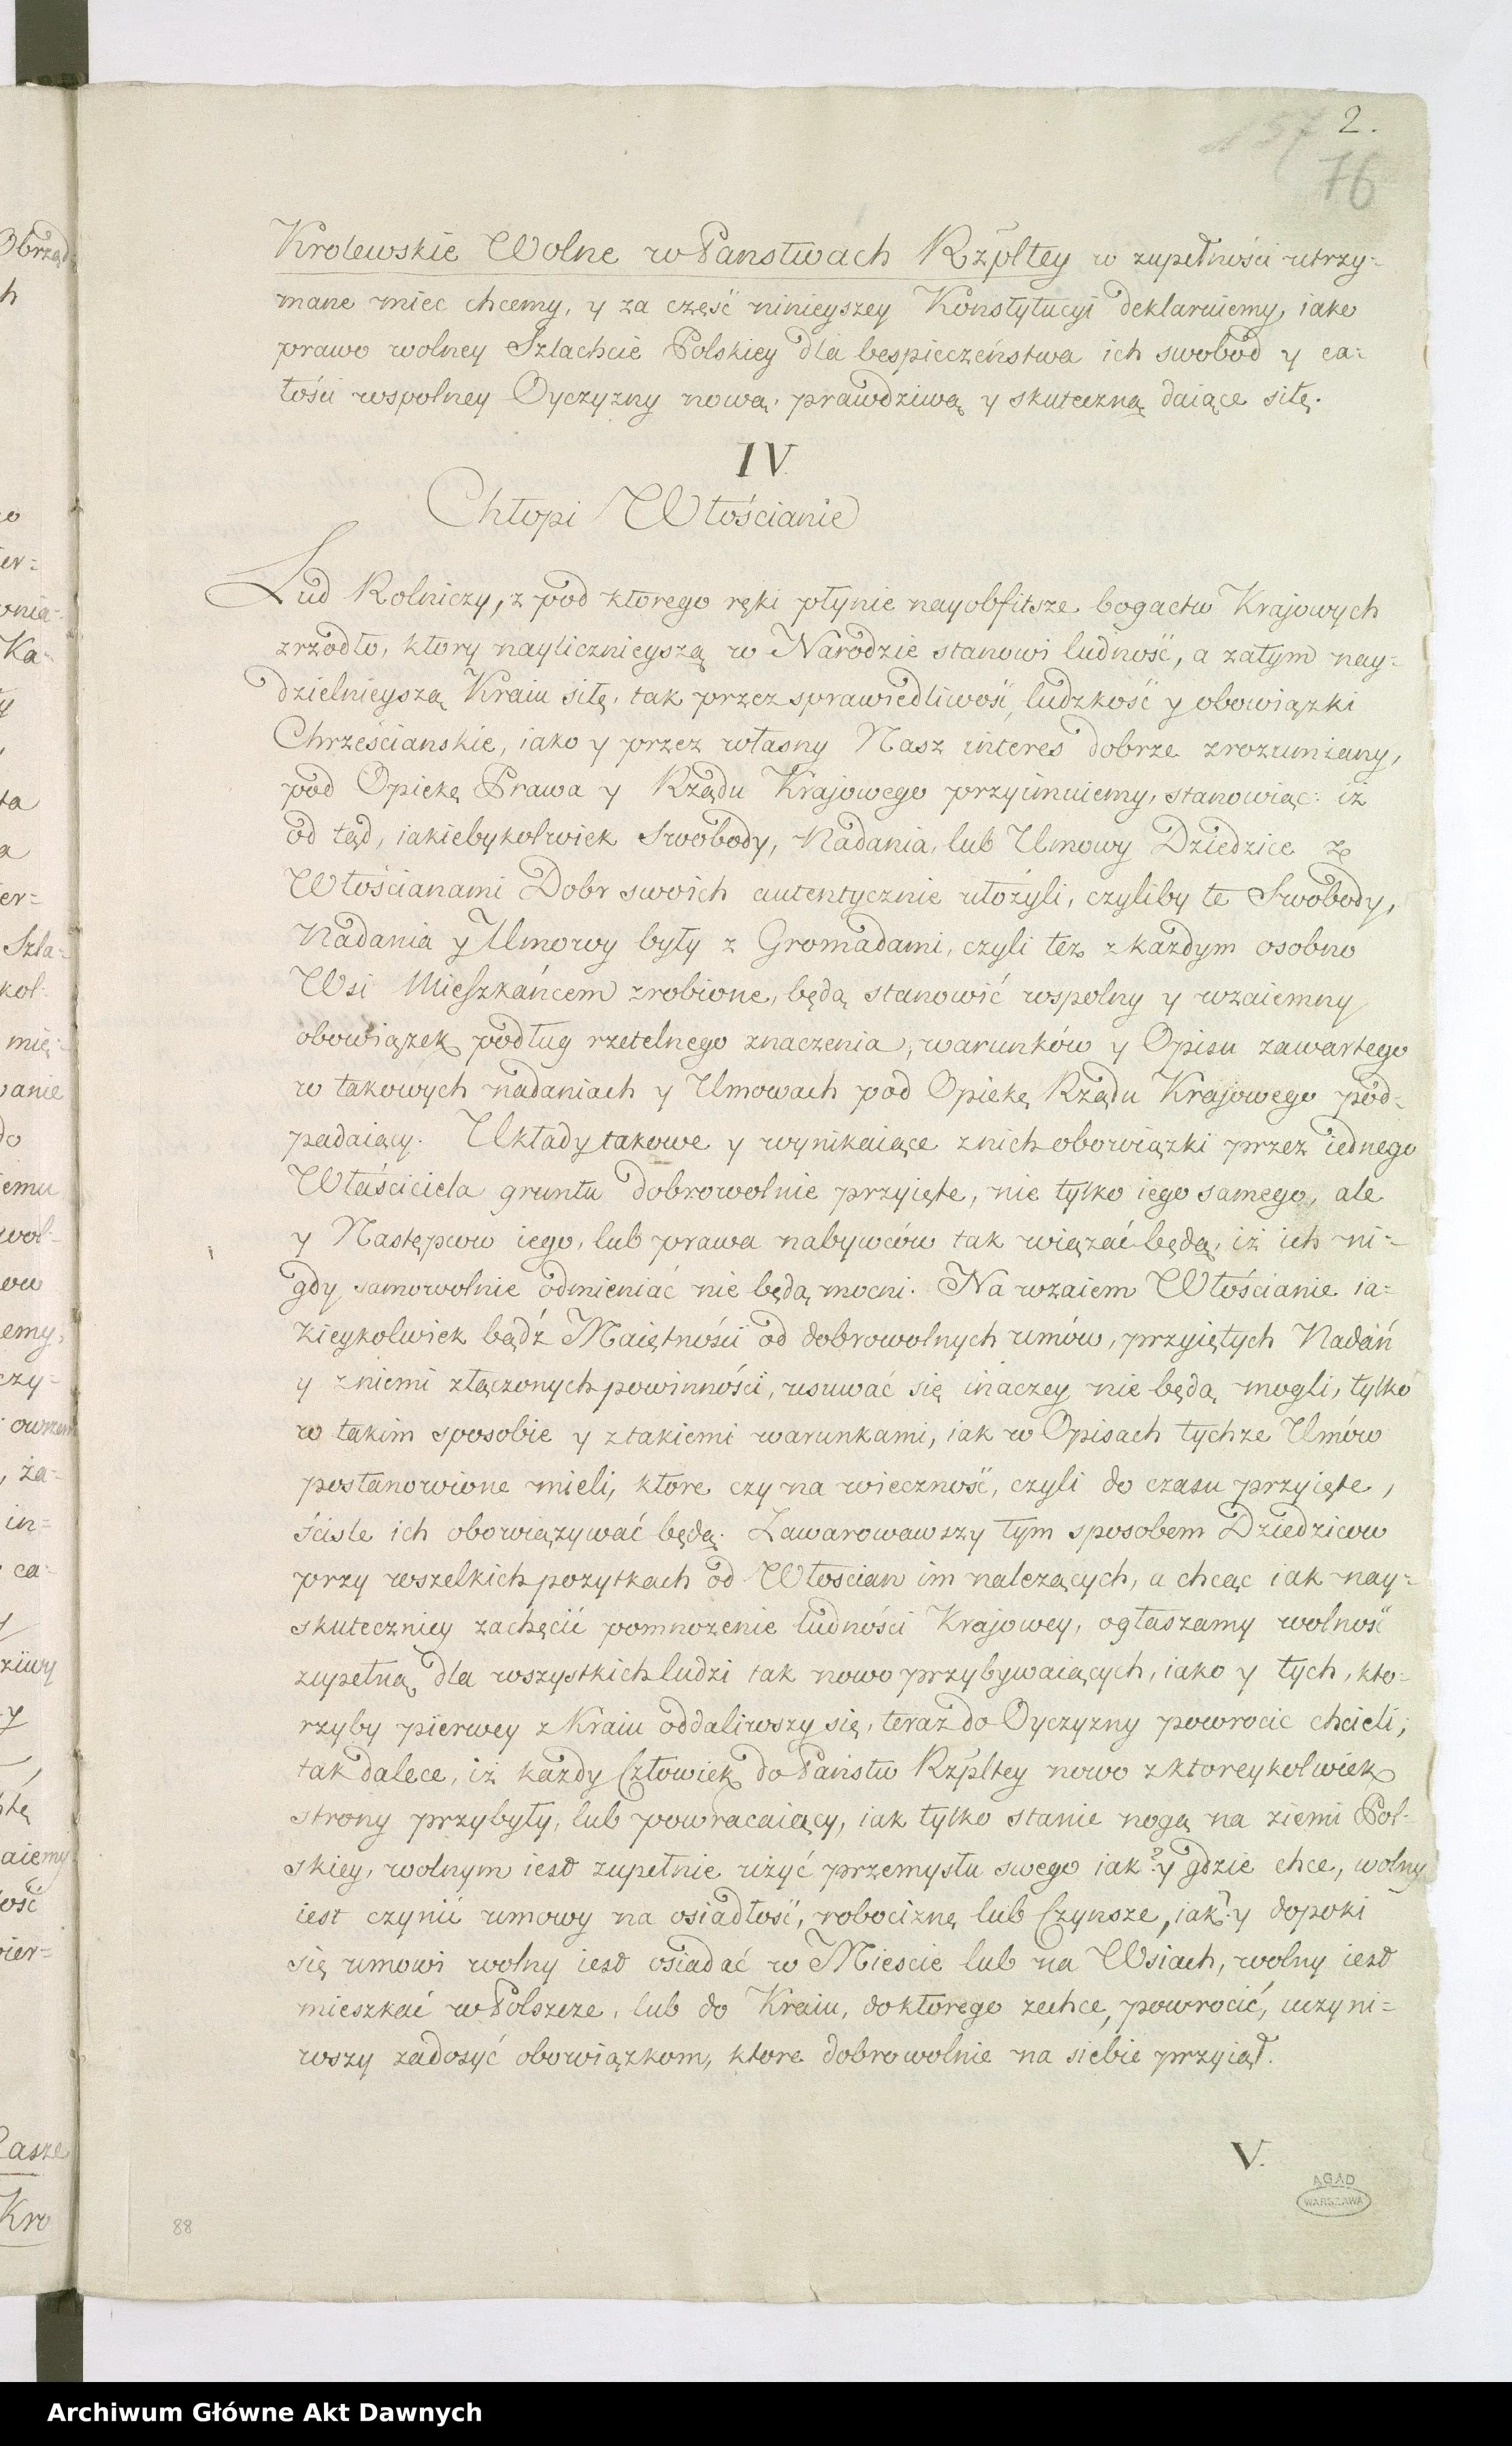 2.
157
76
Krolewskie Wolne w Panstwach Rzpltey w zupełności utrzy=
mane miec chcemy, y za część ninieyszey Konstytucyi deklaruiemy, iako
prawo wolney Szlachcie Polskiey dla bespieczeństwa ich swobód y ca=
łości wspolney Oyczyzny nową, prawdziwą y skuteczną daiące siłę.
IV.
Chłopi Włościanie
Lud Rolniczy, z pod ktorego ręki płynie nayobfitsze bogactw Krajowych
zrzodło, ktory naylicznieyszą w Narodzie stanowi ludność, a zatym nay=
dzielnieyszą Kraiu siłę, tak przez sprawiedliwość, ludzkość y obowiązki
Chrześcianskie, iako y przez własny Nasz interes dobrze zrozumiany,
pod Opiekę Prawa y Rządu Krajowego przyimuiemy, stanowiąc: iż
od tąd, iakiebykolwiek Swobody, Nadania, lub Umowy Dziedzice ze
Włościanami Dobr swoich autentycznie ułożyli, czyliby te Swobody,
Nadania y Umowy były z Gromadami, czyli też z każdym osobno
Wsi Mieszkańcem zrobione, będą stanowić wspolny y wzaiemny
obowiązek podług rzetelnego znaczenia, warunków y Opisu zawartego
w takowych nadaniach y Umowach pod Opiekę Rządu Krajowego pod=
padaiący. Układy takowe y wynikaiące z nich obowiązki przez iednego
Właściciela gruntu dobrowolnie przyięte, nie tylko iego samego, ale
y Następcow iego, lub prawa nabywców tak wiązać będą, iż ich ni=
gdy samowolnie odmieniać nie będą mocni. Na wzaiem Włościanie ia=
kieykolwiek bądź Maiętności od dobrowolnych umów, przyiętych Nadań
y z niemi złączonych powinności, usuwać się inaczey nie będą mogli, tylko
w takim sposobie y z takiemi warunkami, iak w Opisach tychze Umów
postanowione mieli, ktore czy na wieczność, czyli do czasu przyięte,
ściśle ich obowiązywać będą. Zawarowawszy tym sposobem Dziedzicow
przy wszelkich pozytkach od Włoscian im nalezących, a chcąc iak nay=
skuteczniey zachęcić pomnozenie ludności Krajowey, ogłaszamy wolność
zupełną dla wszystkich ludzi tak nowo przybywaiących, iako y tych, kto=
rzyby pierwey z Kraiu oddaliwszy się, teraz do Oyczyzny powrocic chcieli;
tak dalece, iż każdy Człowiek do Państw Rzpltey nowo z ktoreykolwiek
strony przybyły, lub powracaiący, iak tylko stanie nogą na ziemi Pol=
skiey, wolnym iest zupełnie użyć przemysłu swego iak? y gdzie chce, wolny
iest czynić umowy na osiadłość, robociznę lub Czynsze, iak? y dopoki
się umowi wolny iest osiadać w Miescie lub na Wsiach, wolny iest
mieszkać w Polszcze, lub do Kraiu, do ktorego zechce, powrocić, uczyni=
wszy zadosyć obowiązkom, ktore dobrowolnie na siebie przyiął.
V.
AGAD
WARSZAWA
88
Archiwum Główne Akt Dawnych